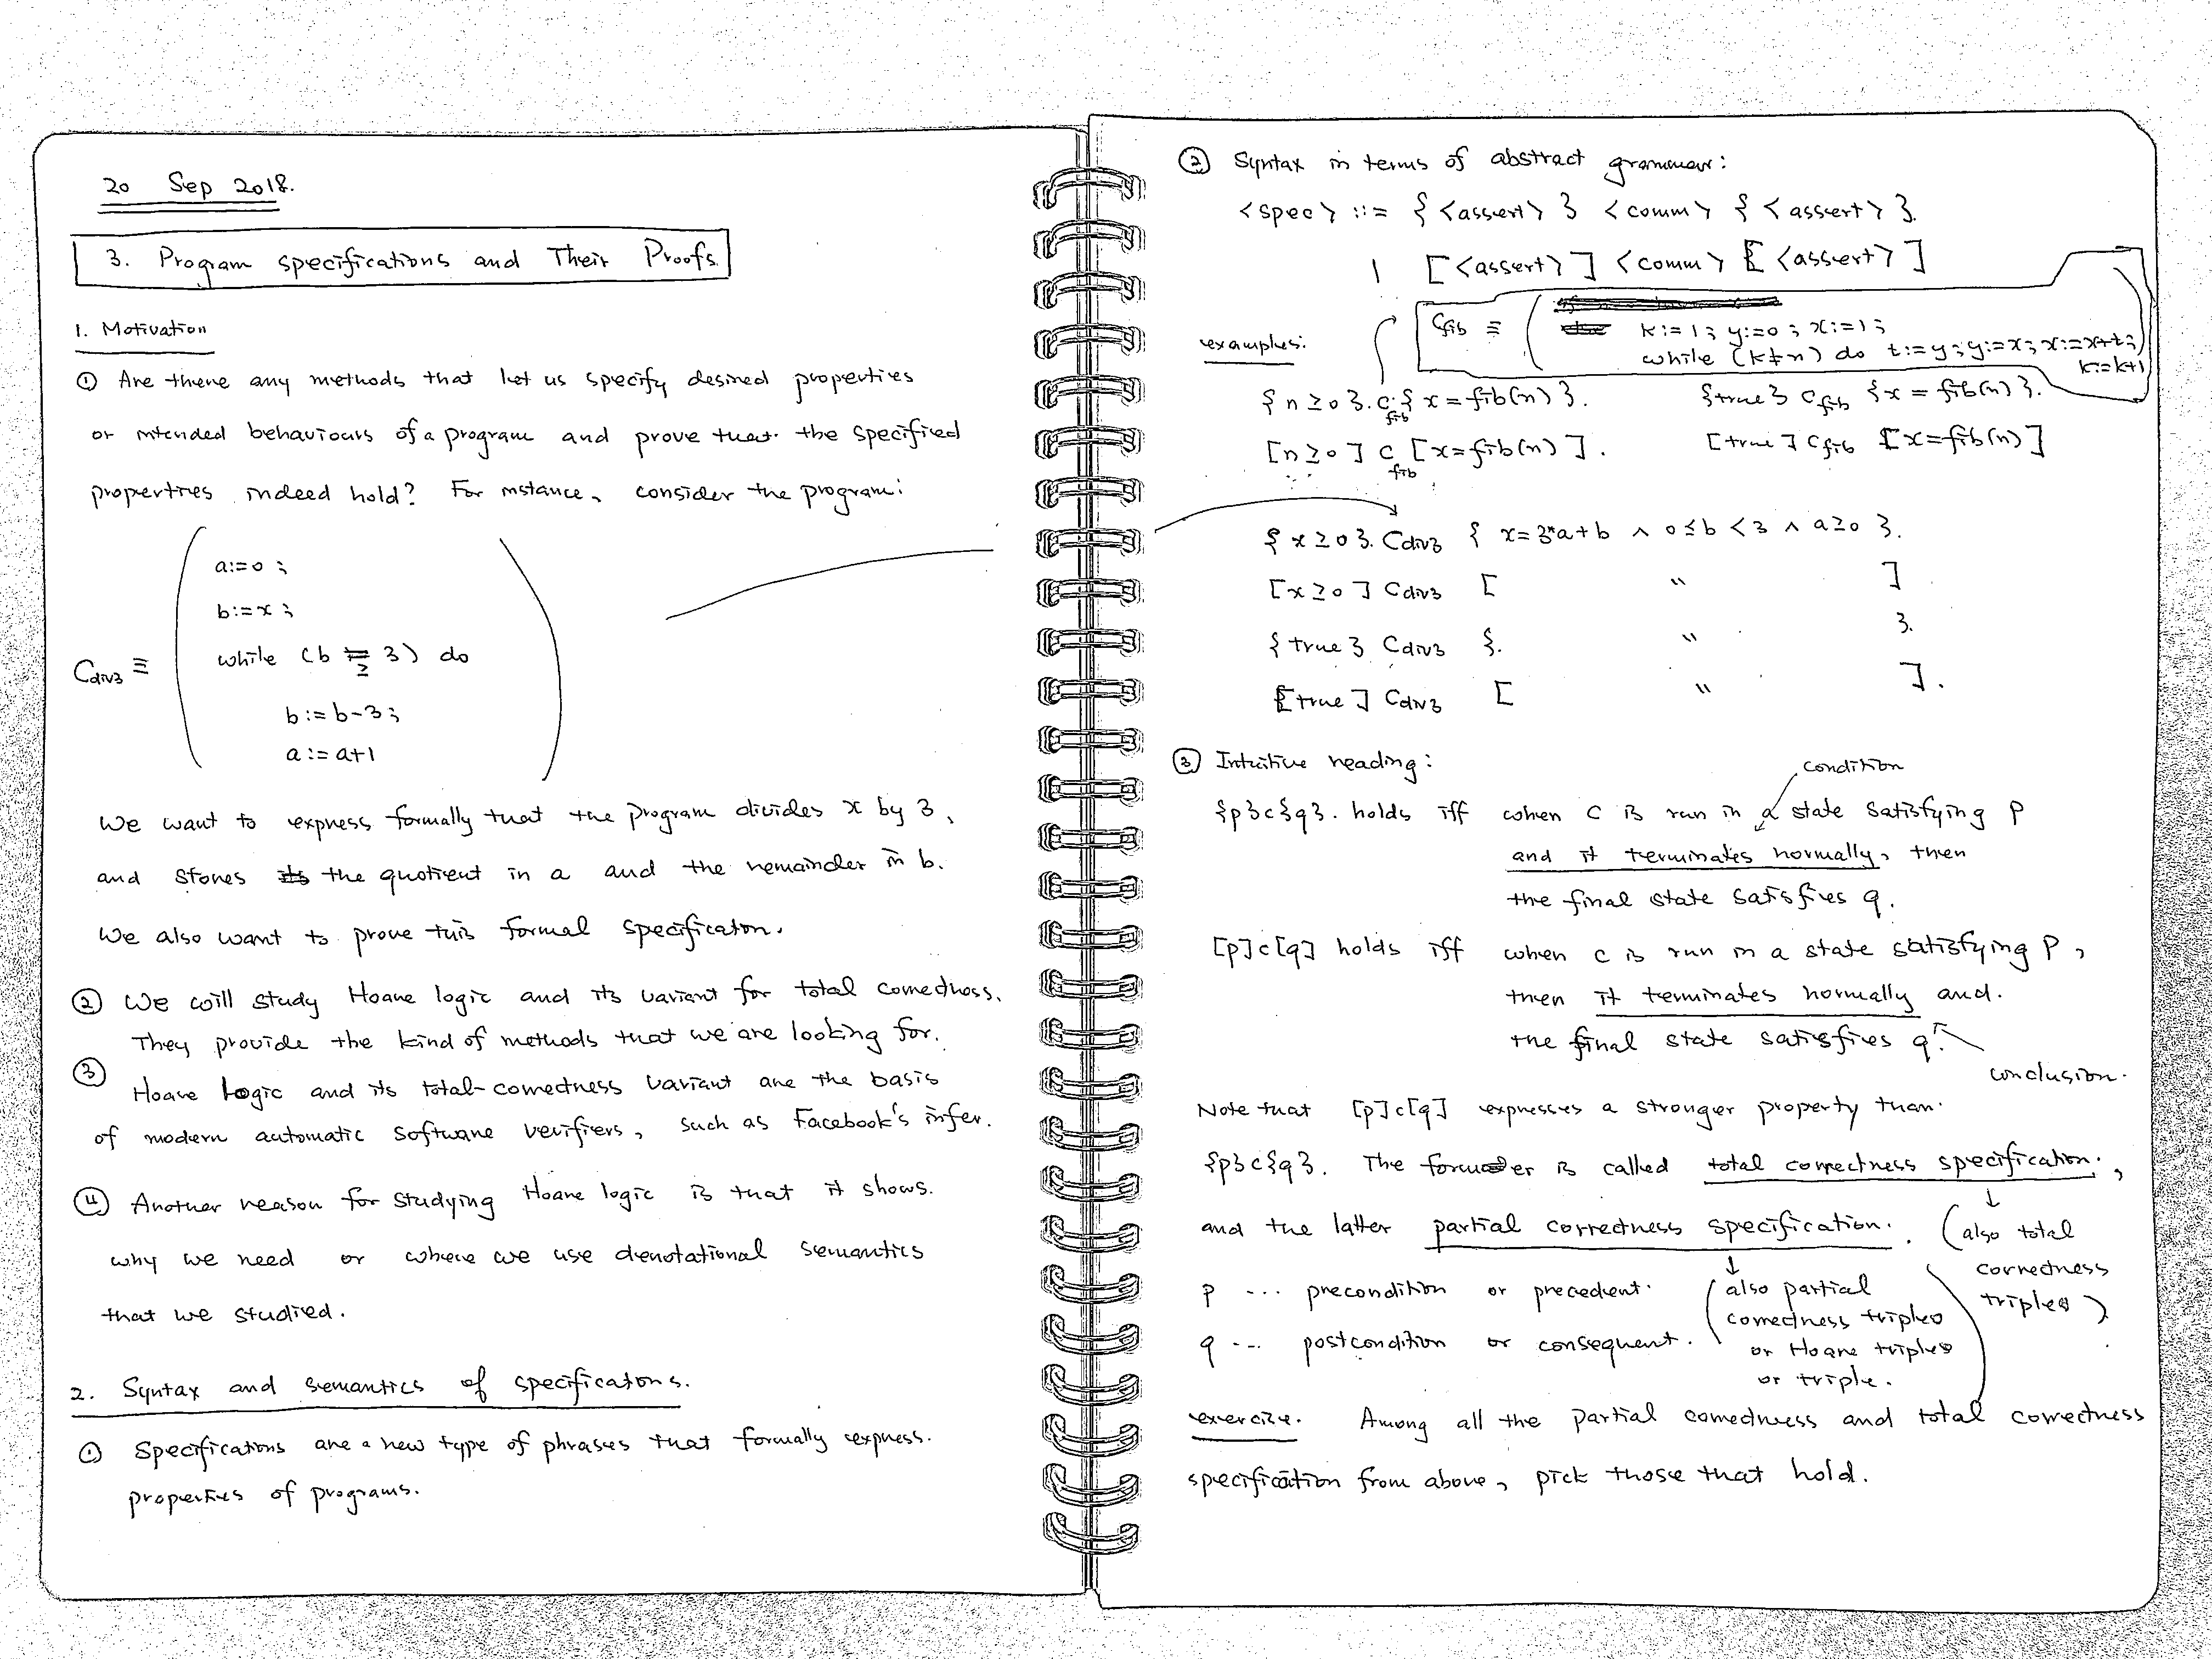 20 Sep 2018.
3. Program specifications and Their Proofs.
1. Motivation
① Are there any methods that let us specify desired properties
or intended behaviours of a program and prove that the specified
properties indeed hold? For instance, consider the program:
a:=0 ;
b:=x ;
while (b ≥ 3) do
C_div3 ≡
b:=b-3;
a:=a+1
We want to express formally that the program divides x by 3,
and stores the quotient in a and the remainder in b.
We also want to prove this formal specification.
② We will study Hoare logic and its variant for total correctness.
They provide the kind of methods that we are looking for.
③ Hoare logic and its total-correctness variant are the basis
of modern automatic software verifiers, such as Facebook's infer.
④ Another reason for studying Hoare logic is that it shows.
why we need or where we use denotational semantics
that we studied.
2. Syntax and semantics of specifications.
① Specifications are a new type of phrases that formally express.
properties of programs.
② Syntax in terms of abstract grammar:
<spec> ::= { <assert> } <comm> { <assert> }.
| [<assert>] <comm> [<assert>]
C_fib ≡ ( k:=1; y:=0; x:=1;
while (k≠n) do t:=y; y:=x; x:=x+t;
k:=k+1 )
examples:
{n≥0}. C_fib { x=fib(n) }. {true} C_fib {x = fib(n)}.
[n≥0] C_fib [x=fib(n)]. [true] C_fib [x=fib(n)]
{x≥0}. C_div3 { x=3*a+b ∧ 0≤b<3 ∧ a≥0 }.
[x≥0] C_div3 [ " ]
{true} C_div3 {. " }.
[true] C_div3 [ " ].
③ Intuitive reading:
condition
{p}c{q}. holds iff when c is run in a state satisfying p
and it terminates normally, then
the final state satisfies q.
[p]c[q] holds iff when c is run in a state satisfying p,
then it terminates normally and.
the final state satisfies q.
conclusion.
Note that [p]c[q] expresses a stronger property than.
{p}c{q}. The former is called total correctness specification.,
and the latter partial correctness specification. (also total
correctness
triples)
p ... precondition or precedent. (also partial
correctness triples
q ... postcondition or consequent. or Hoare triples
or triple.
exercize. Among all the partial correctness and total correctness
specification from above, pick those that hold.